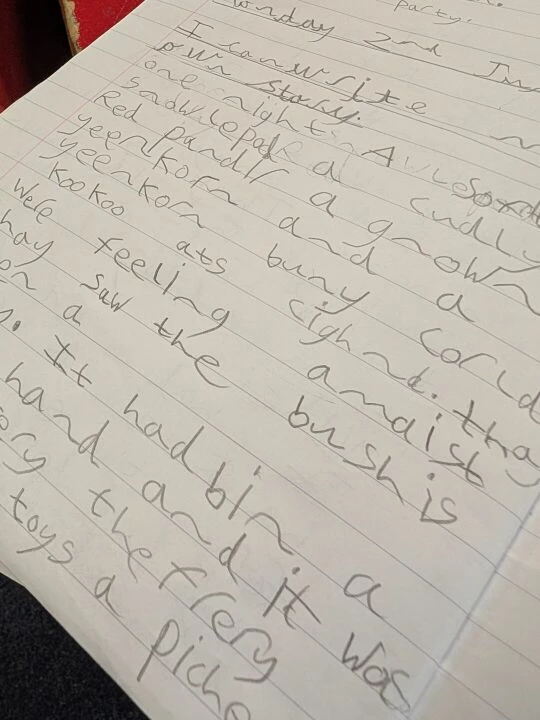 party.
onday 2nd Jun
I can write
own story.
one night Awesom
a cudly
Red Pandr a grown
yeenkorn and a
yeenkorn buny corld
kookoo ats cighnd. tha
were feeling amdist
hay saw the bushis
on a
. It had bin a
hand and it was
ory the frery
toys a piche